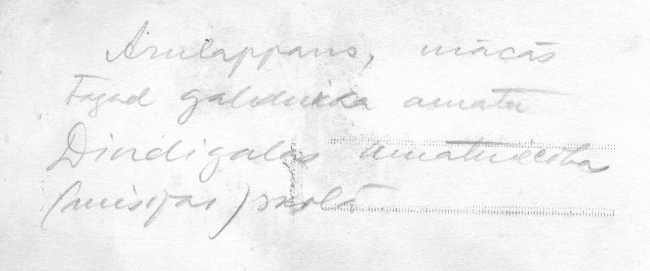 Arulappans, mācās
Tagad galdnieka amatu
Dindigalas amatniecības
(misijas) skolā